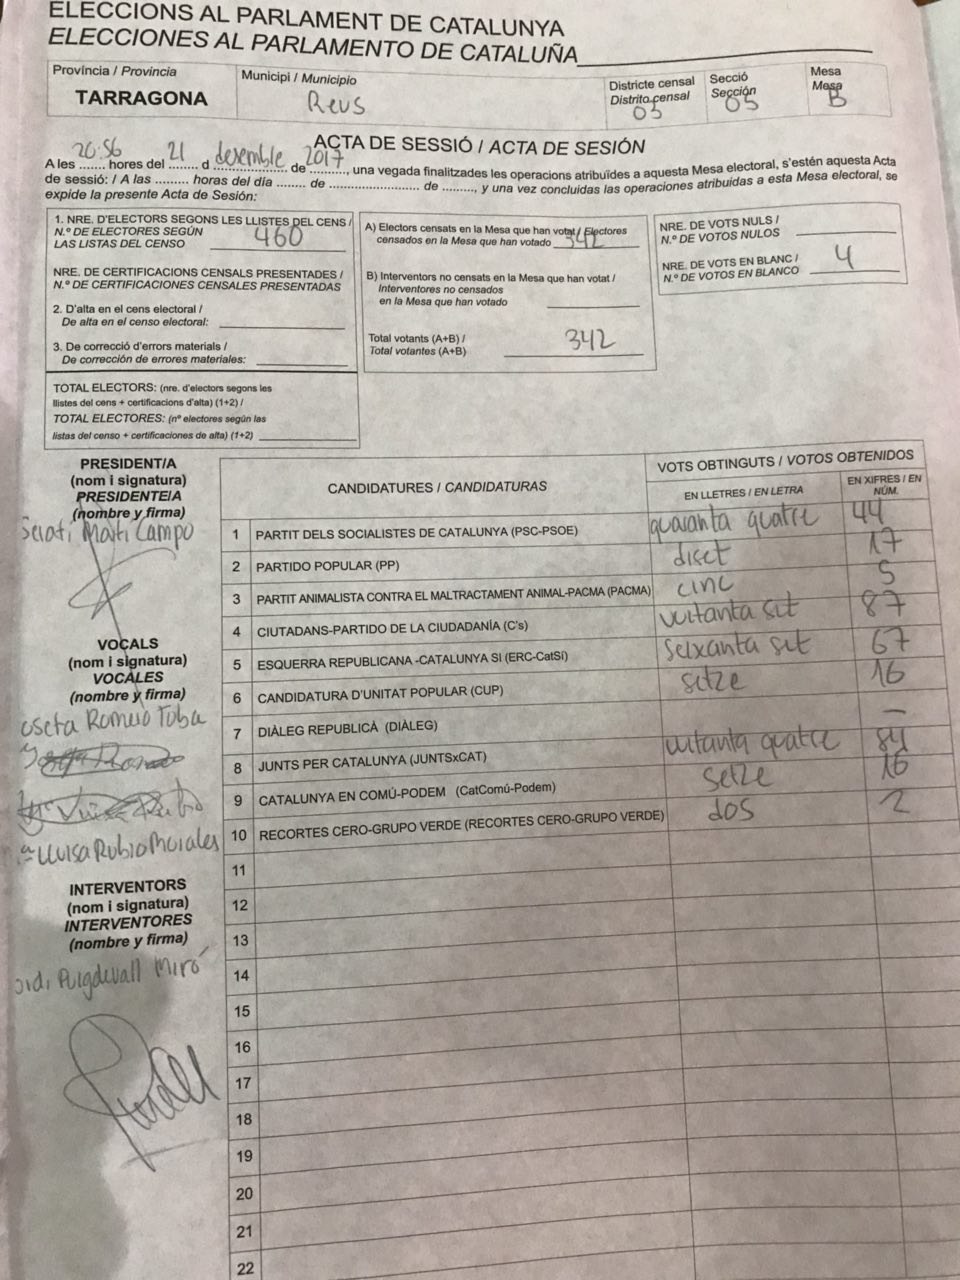 ELECCIONS AL PARLAMENT DE CATALUNYA
ELECCIONES AL PARLAMENTO DE CATALUÑA
Província / Provincia
TARRAGONA
Municipi / Municipio
Reus
Districte censal
Distrito censal
03
Secció
Sección
05
Mesa
Mesa
B
ACTA DE SESSIÓ / ACTA DE SESIÓN
A les 20:56 hores del 21 d desembre de 2017, una vegada finalitzades les operacions atribuïdes a aquesta Mesa electoral, s'estén aquesta Acta
de sessió: / A las ......... horas del día ........ de ........................... de ........., y una vez concluidas las operaciones atribuidas a esta Mesa electoral, se
expide la presente Acta de Sesión:
1. NRE. D'ELECTORS SEGONS LES LLISTES DEL CENS /
N.º DE ELECTORES SEGÚN
LAS LISTAS DEL CENSO 460
NRE. DE CERTIFICACIONS CENSALS PRESENTADES /
N.º DE CERTIFICACIONES CENSALES PRESENTADAS
2. D'alta en el cens electoral /
De alta en el censo electoral:
3. De correcció d'errors materials /
De corrección de errores materiales:
TOTAL ELECTORS: (nre. d'electors segons les
llistes del cens + certificacions d'alta) (1+2) /
TOTAL ELECTORES: (nº electores según las
listas del censo + certificaciones de alta) (1+2)
A) Electors censats en la Mesa que han votat / Electores
censados en la Mesa que han votado 342
B) Interventors no censats en la Mesa que han votat /
Interventores no censados
en la Mesa que han votado
Total votants (A+B) /
Total votantes (A+B) 342
NRE. DE VOTS NULS /
N.º DE VOTOS NULOS
NRE. DE VOTS EN BLANC /
N.º DE VOTOS EN BLANCO 4
PRESIDENT/A
(nom i signatura)
PRESIDENTE/A
(nombre y firma)
Martí Campo
VOCALS
(nom i signatura)
VOCALES
(nombre y firma)
Romero
Lluisa Rubio Morales
INTERVENTORS
(nom i signatura)
INTERVENTORES
(nombre y firma)
Puigdevall Miró
CANDIDATURES / CANDIDATURAS
VOTS OBTINGUTS / VOTOS OBTENIDOS
EN LLETRES / EN LETRA
EN XIFRES / EN
NÚM.
1 PARTIT DELS SOCIALISTES DE CATALUNYA (PSC-PSOE) quaranta quatre 44
2 PARTIDO POPULAR (PP) diset 17
3 PARTIT ANIMALISTA CONTRA EL MALTRACTAMENT ANIMAL-PACMA (PACMA) cinc 5
4 CIUTADANS-PARTIDO DE LA CIUDADANÍA (C's) vuitanta sit 87
5 ESQUERRA REPUBLICANA -CATALUNYA SI (ERC-CatSí) seixanta set 67
6 CANDIDATURA D'UNITAT POPULAR (CUP) setze 16
7 DIÀLEG REPUBLICÀ (DIÀLEG) —
8 JUNTS PER CATALUNYA (JUNTSxCAT) vuitanta quatre 84
9 CATALUNYA EN COMÚ-PODEM (CatComú-Podem) setze 16
10 RECORTES CERO-GRUPO VERDE (RECORTES CERO-GRUPO VERDE) dos 2
11
12
13
14
15
16
17
18
19
20
21
22